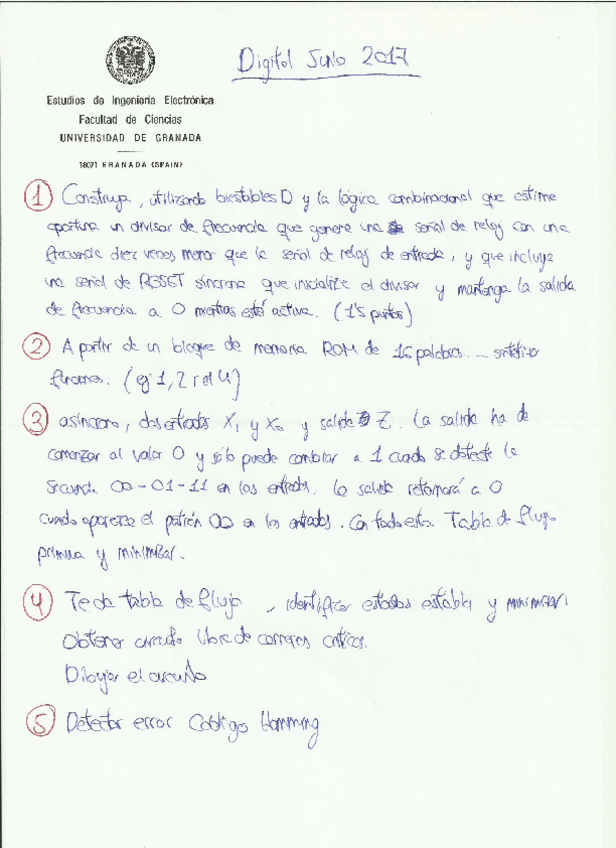 Digital Junio 2017
Estudios de Ingeniería Electrónica
Facultad de Ciencias
UNIVERSIDAD DE GRANADA
18071 GRANADA (SPAIN)
1 Construya, utilizando biestables D y la lógica combinacional que estime
oportuna un divisor de frecuencia que genere una señal de reloj con una
frecuencia diez veces menor que la señal de reloj de entrada, y que incluya
una señal de RESET síncrona que inicialize el divisor y mantenga la salida
de frecuencia a 0 mientras esté activa. (1'5 puntos)
2 A partir de un bloque de memoria ROM de 16 palabras ...
funciones. (ej 1, 2 rel 4)
3 asíncrono, dos entradas X1 y X0 y salida Z. La salida ha de
comenzar al valor 0 y sólo puede cambiar a 1 cuando se detecte la
secuencia 00-01-11 en las entradas. La salida retornará a 0
cuando aparezca el patrón 00 en las entradas. Con todo esto. Tabla de flujo
primitiva y minimizar.
4 Te da tabla de flujo, identificar estados estables y minimizar.
Obtener circuito libre de carreras críticas.
Dibujar el circuito
5 Detectar error Código Hamming